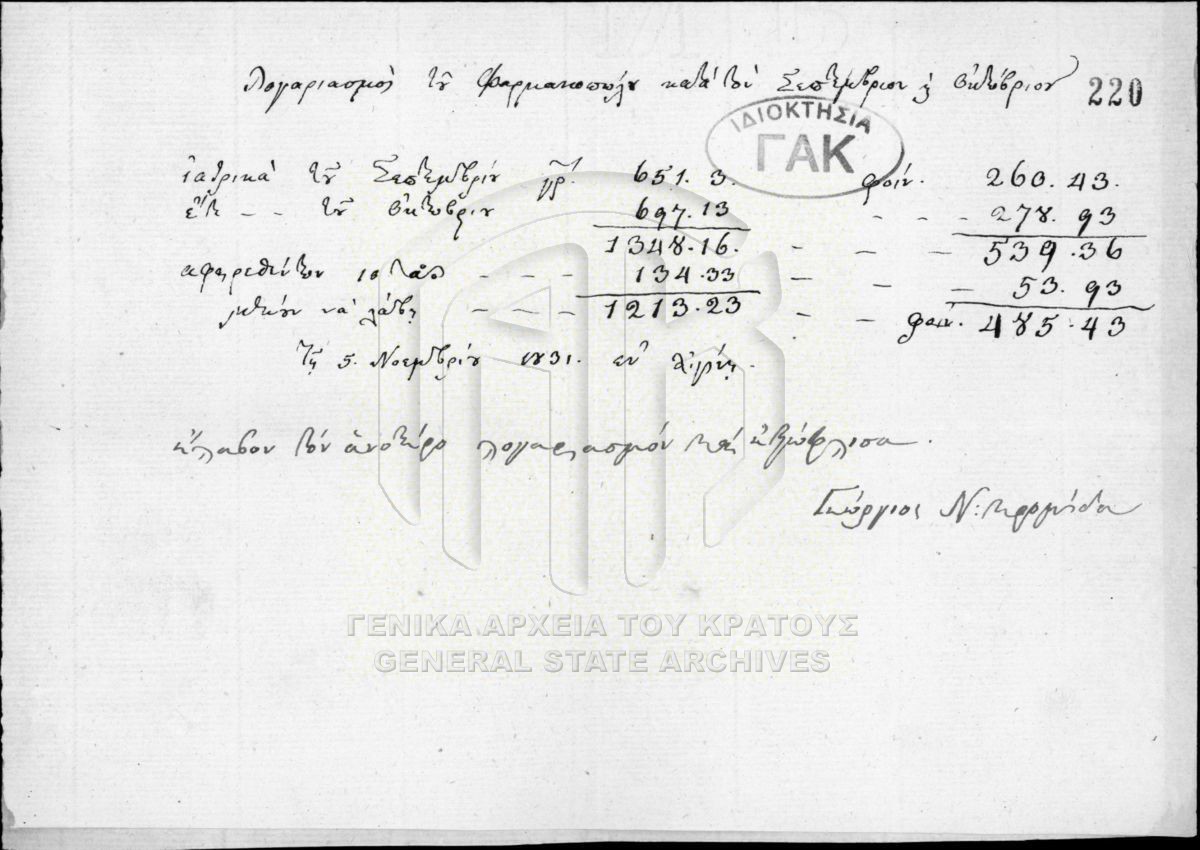 Λογαριασμός τοῦ Φαρμακοπώλου κατὰ τὸν Σεπτέμβριον ϗ Ὀκτώβριον 220
ΙΔΙΟΚΤΗΣΙΑ
ΓΑΚ
ἰατρικὰ τοῦ Σεπτεμβρίου γρ. 651.3. φοίν. 260.43.
ἔτι - - τοῦ Ὀκτωβρίου 697.13 - - - 278.93
1348.16. - - - 539.36
αφαιρεθέντων 10 τα % - - - 134.33 - - - 53.93
μένουν να λάβῃ - - - - 1213.23 - - φοίν. 485.43
Τῇ 5. Νοεμβρίου 1831. εν Αἰγίνῃ.
ἔλαβον τὸν ἀνοτέρο λογαριασμόν καὶ ἐξώφλισα.
Γεώργιος Ν:
ΓΕΝΙΚΑ ΑΡΧΕΙΑ ΤΟΥ ΚΡΑΤΟΥΣ
GENERAL STATE ARCHIVES